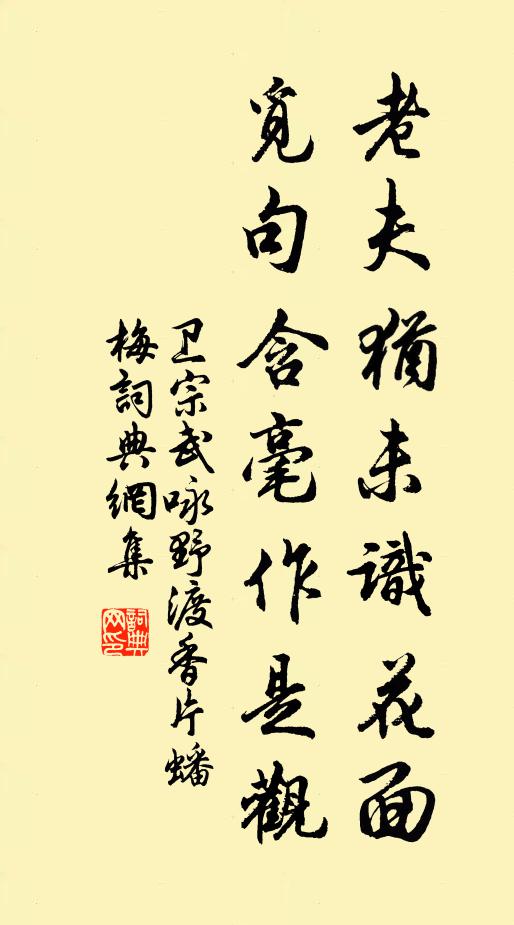 老夫猶未識花面
覓句含毫作是觀
卫宗武咏野渡香片蟠
梅詞典網集
詞典
网印